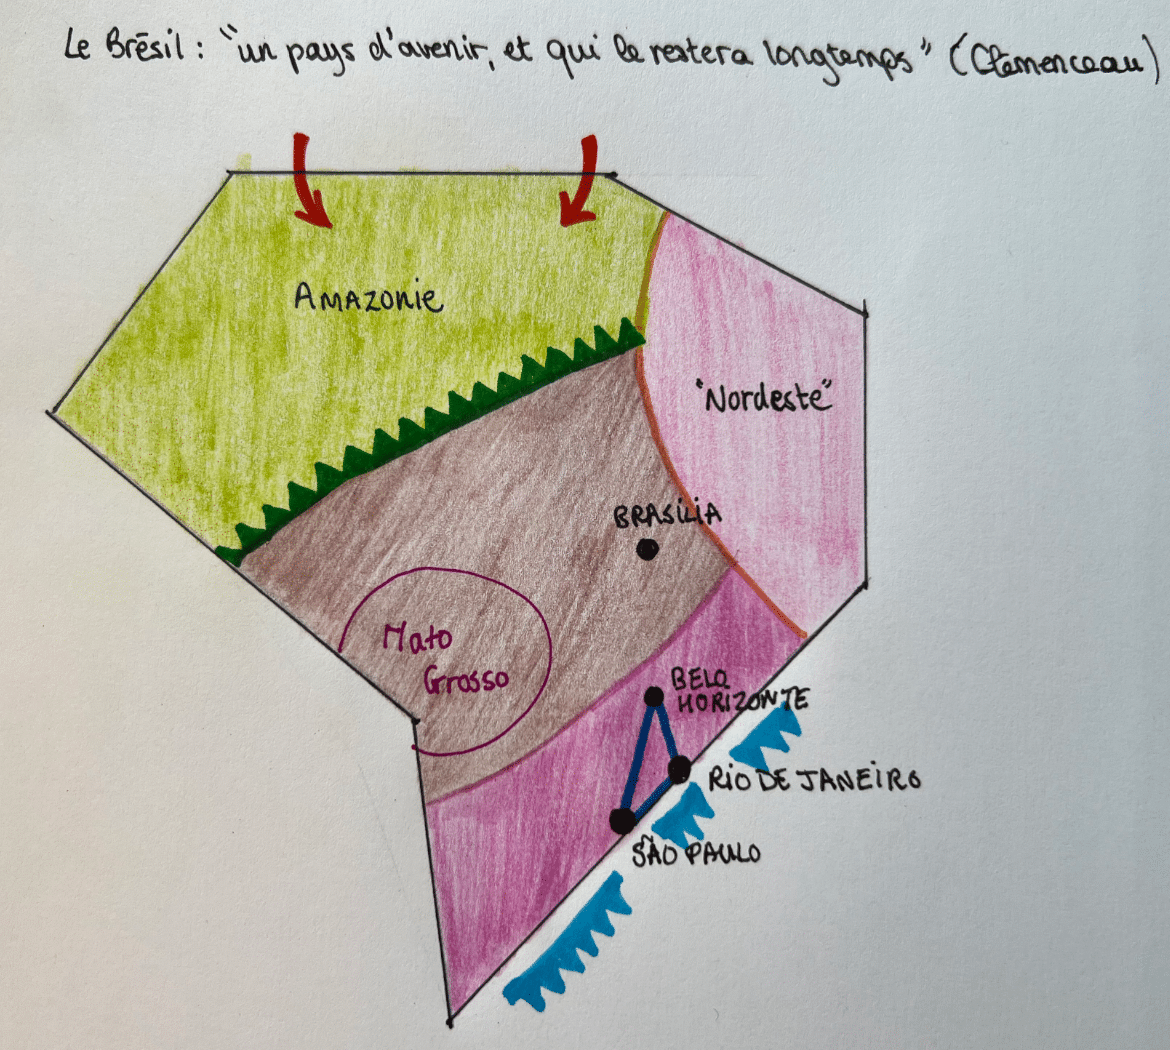 Le Brésil : "un pays d'avenir, et qui le restera longtemps" (Clémenceau)
AMAZONIE
"Nordeste"
BRASÍLIA
Mato
Grosso
BELO
HORIZONTE
RIO DE JANEIRO
SÃO PAULO